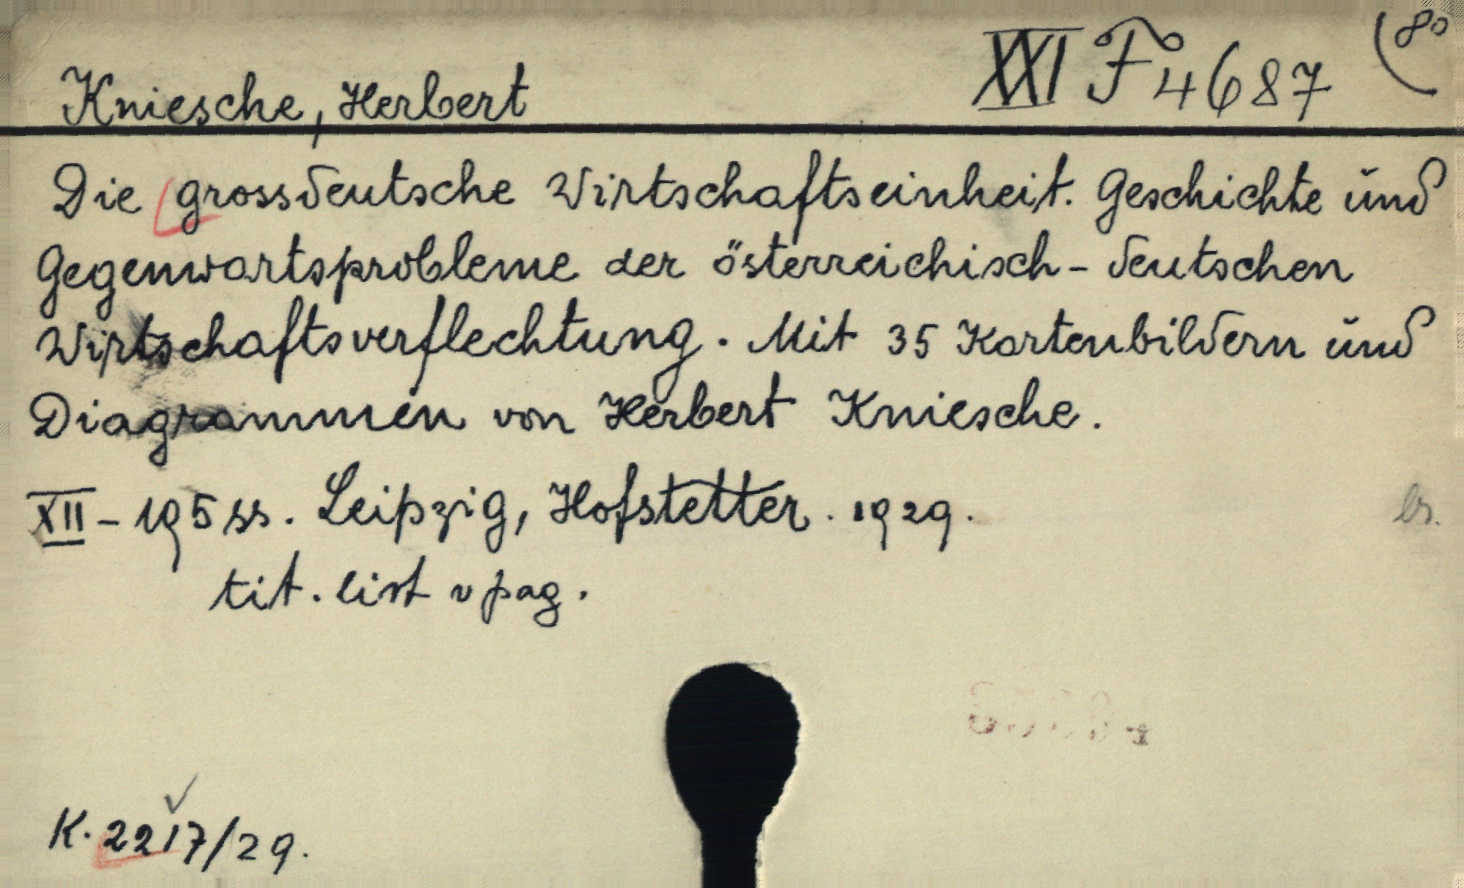 XXI F 4687 (80
Kniesche, Herbert
Die grossdeutsche Wirtschaftseinheit. Geschichte und
Gegenwartsprobleme der österreichisch-deutschen
Wirtschaftsverflechtung. Mit 35 Kartenbildern und
Diagrammen von Herbert Kniesche.
XII - 195 ss. Leipzig, Hofstetter. 1929.
br.
tit. list v pag.
K. 2217/29.